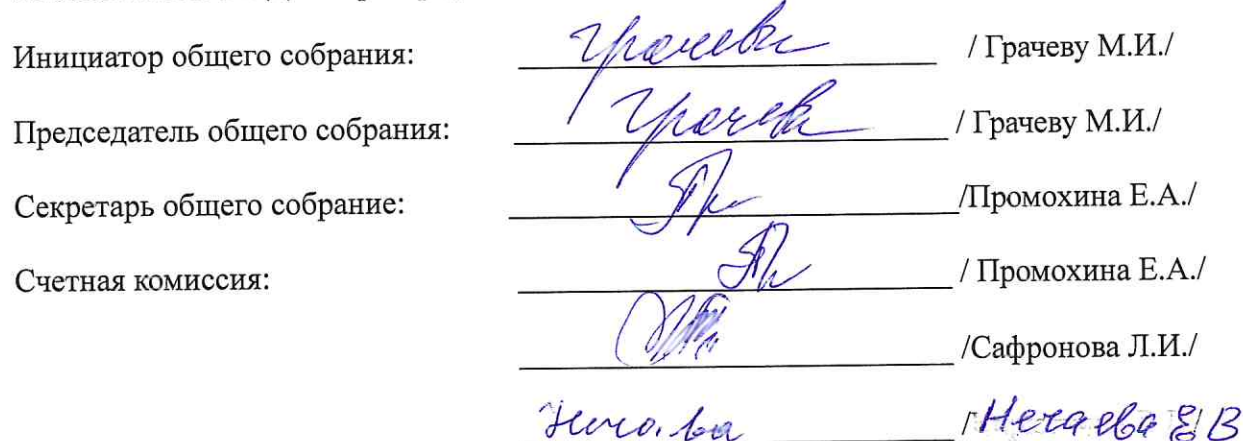 Инициатор общего собрания: Грачева / Грачеву М.И./
Председатель общего собрания: Грачева / Грачеву М.И./
Секретарь общего собрание: /Промохина Е.А./
Счетная комиссия: / Промохина Е.А./
/Сафронова Л.И./
/Нечаева Е В